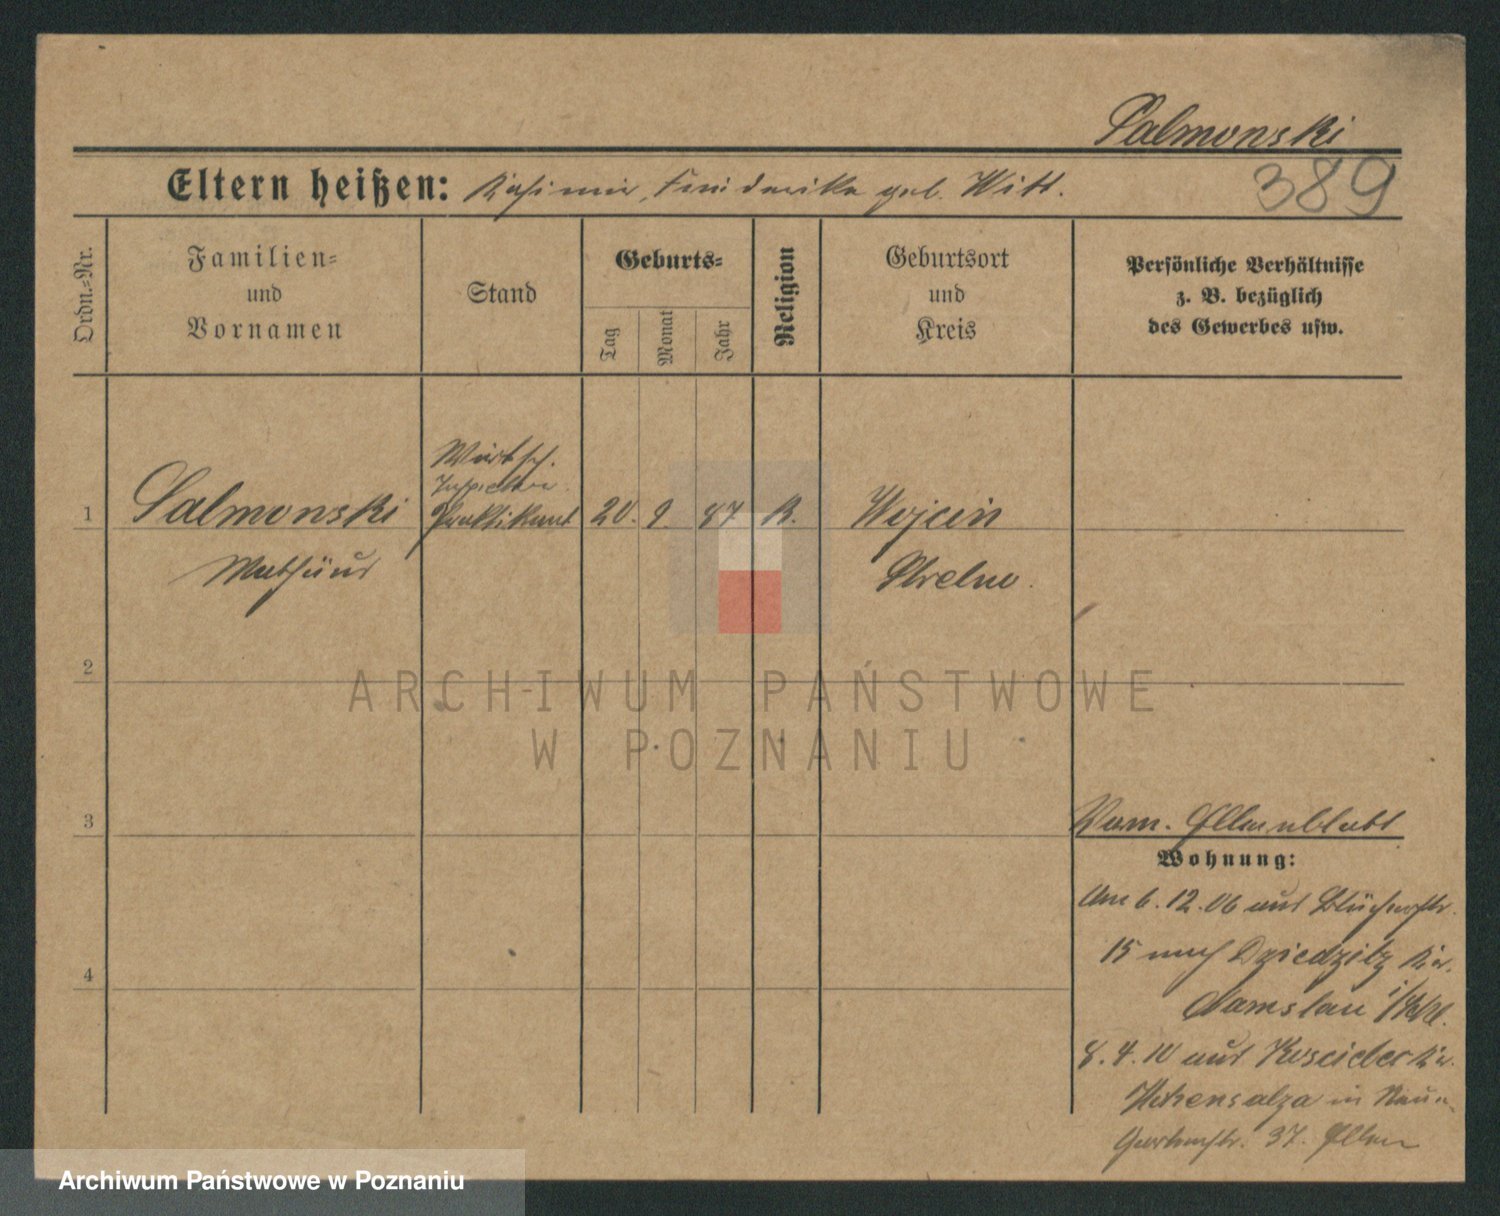 Salmonski
Eltern heißen: Kasimir, Friederike geb. Witt.
389
Ordn.-Nr.
Familien-
und
Vornamen
Stand
Geburts-
Tag
Monat
Jahr
Religion
Geburtsort
und
Kreis
Persönliche Verhältnisse
z. B. bezüglich
des Gewerbes usw.
Wirtsch.
Praktikant
1 Salmonski 20. 9. 87 K. Wojcin
Mathäus
Strelno.
2
ARCHIWUM PAŃSTWOWE
W POZNANIU
3
Vom. Elternblatt
Wohnung:
Am 6.12.06 aus Blücherstr.
15 nach Dziedzitz Kr.
4
Namslau
8.4.10 aus Koscielec Kr.
Hohensalza in
Gartenstr. 37. Eltern
Archiwum Państwowe w Poznaniu